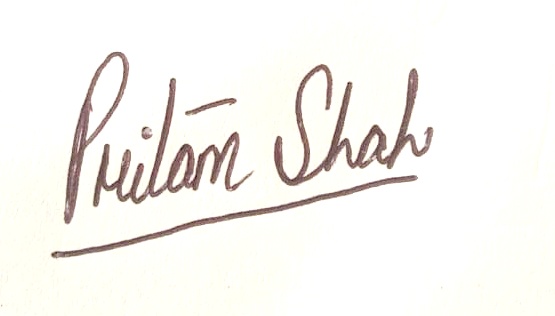 Pritam Shah